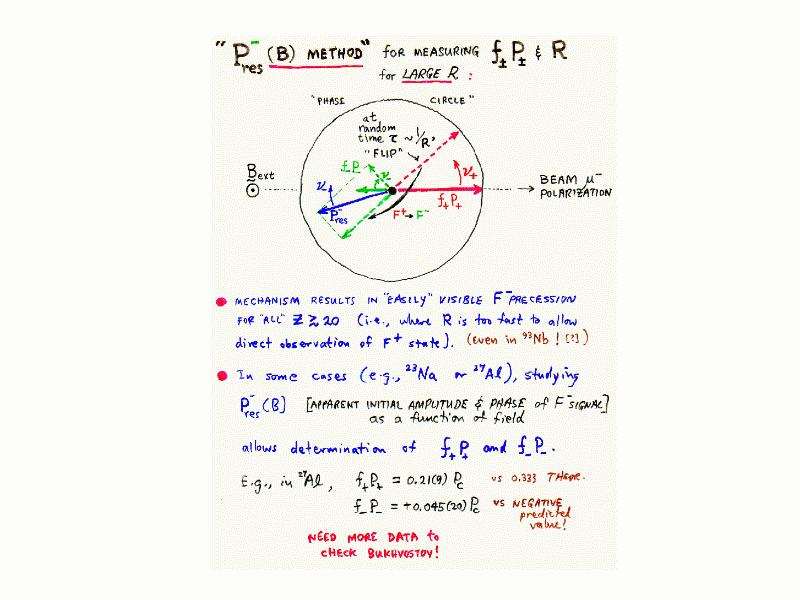 "P⁻res (B) METHOD" FOR MEASURING f±P± & R
for LARGE R :
"PHASE CIRCLE"
at
random
time τ ~ 1/R,
"FLIP"
f₋P₋
ν₋
ν₊
Bext
ν₋
P⁻res
f₊P₊
F⁺→F⁻
BEAM μ⁻
POLARIZATION
MECHANISM RESULTS IN "EASILY" VISIBLE F⁻ PRECESSION
FOR "ALL" Z ≳ 20 (i.e., where R is too fast to allow
direct observation of F⁺ state). (even in ⁹³Nb ! [?])
In some cases (e.g., ²³Na or ²⁷Al), studying
P⁻res (B) [APPARENT INITIAL AMPLITUDE & PHASE of F⁻ SIGNAL]
as a function of field
allows determination of f₊P₊ and f₋P₋.
E.g., in ²⁷Al, f₊P₊ = 0.21(9) Pc vs 0.333 THEOR.
f₋P₋ = +0.045(20) Pc vs NEGATIVE
predicted
value!
NEED MORE DATA to
CHECK BUKHVOSTOV!